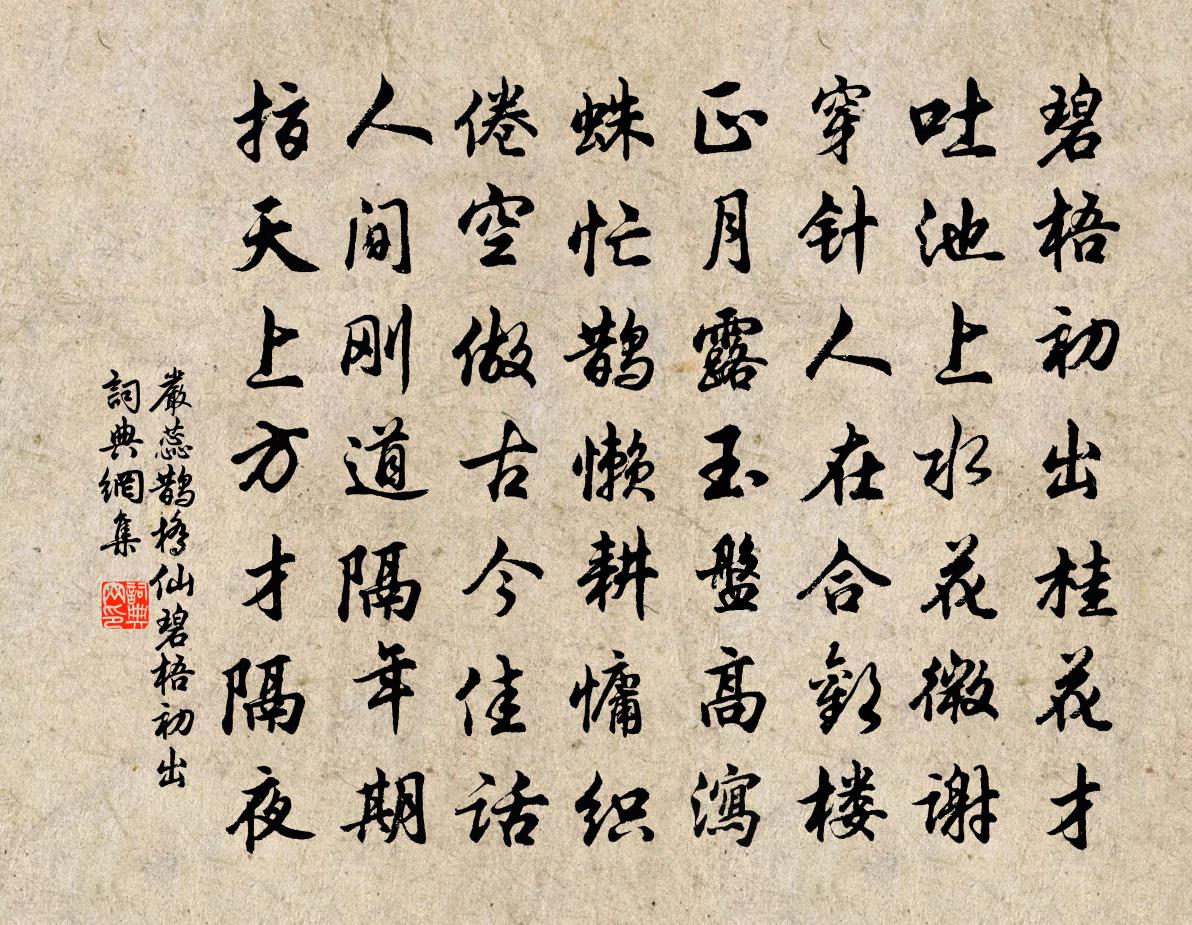 碧梧初出桂花才
吐池上水花微谢
穿针人在合歡楼
正月露玉盤高瀉
蛛忙鵲懒耕慵织
倦空做古今佳话
人间刚道隔年期
指天上方才隔夜
嚴蕊鵲橋仙碧梧初出
詞典網集
詞典網印